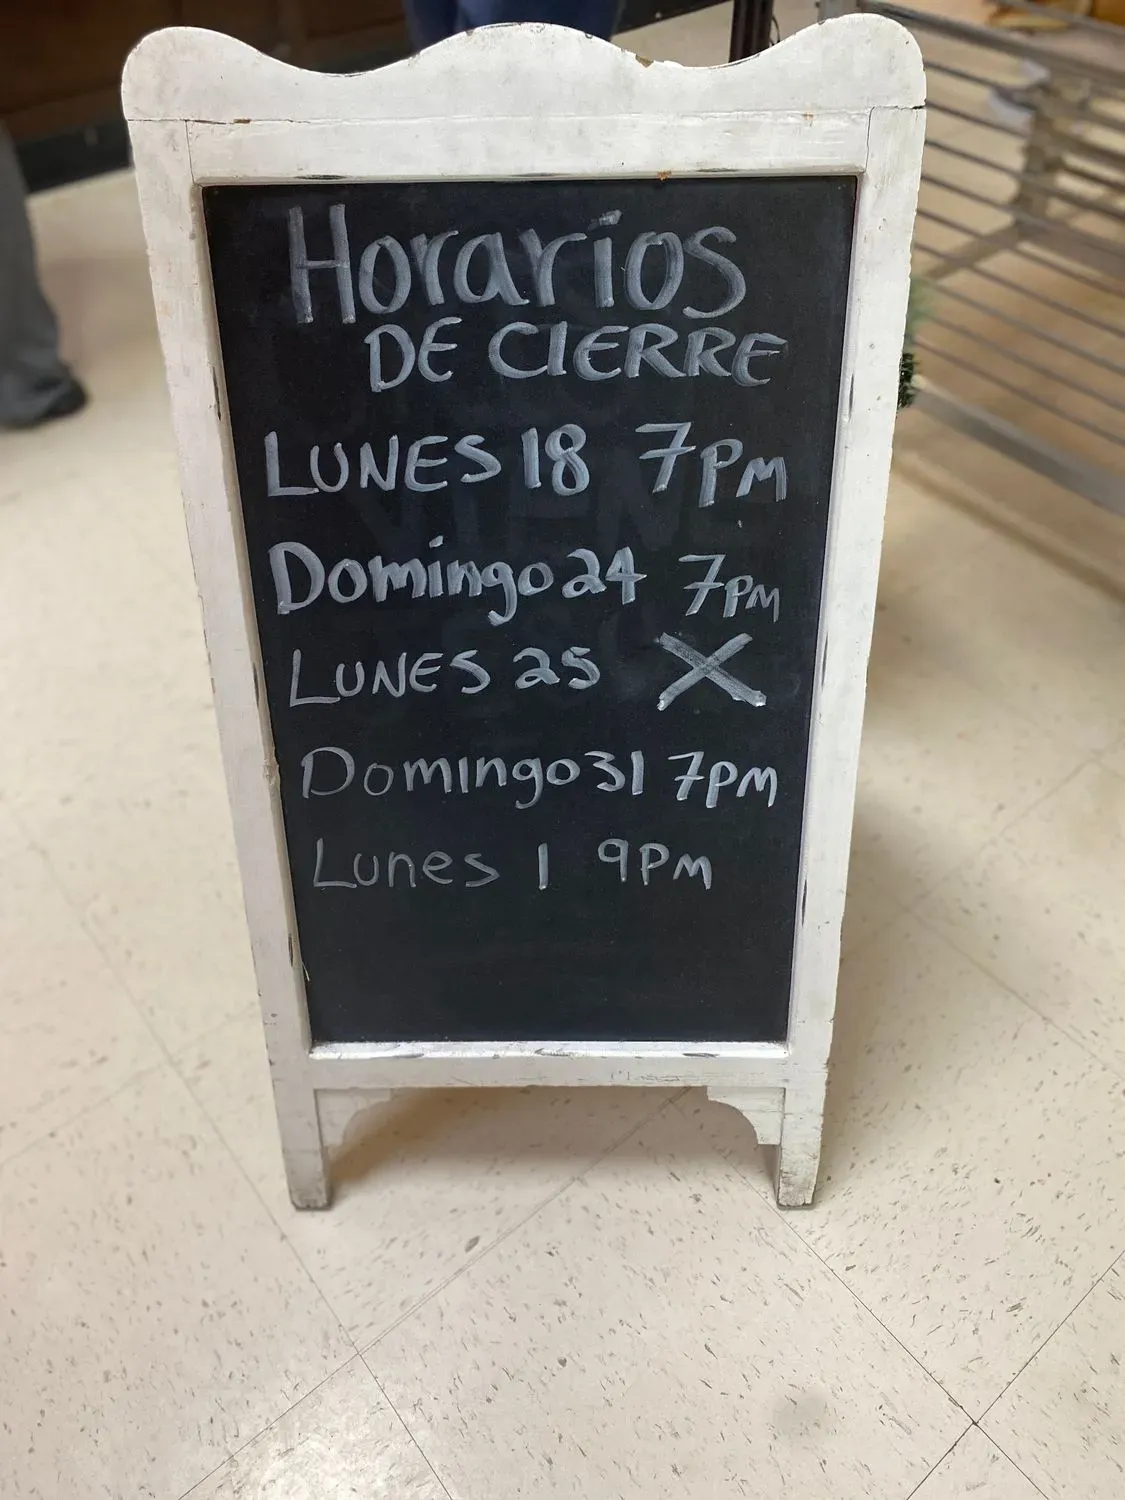 Horarios
DE CIERRE
LUNES 18 7PM
Domingo 24 7PM
LUNES 25 X
Domingo 31 7PM
Lunes 1 9PM